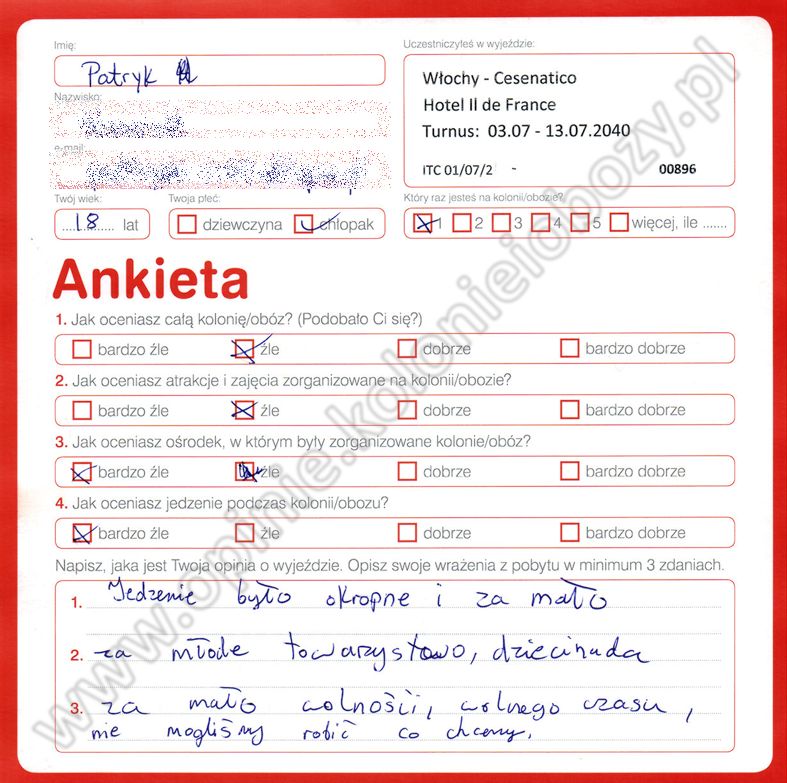 Imię:
Patryk
Uczestniczyłeś w wyjeździe:
Włochy - Cesenatico
Hotel Il de France
Turnus: 03.07 - 13.07.2040
ITC 01/07/2 - 00896
Nazwisko:
e-mail
Twój wiek:
18 lat
Twoja płeć:
dziewczyna chłopak
Który raz jesteś na kolonii/obozie?
1 2 3 4 5 więcej, ile .......
Ankieta
1. Jak oceniasz całą kolonię/obóz? (Podobało Ci się?)
bardzo źle źle dobrze bardzo dobrze
2. Jak oceniasz atrakcje i zajęcia zorganizowane na kolonii/obozie?
bardzo źle źle dobrze bardzo dobrze
3. Jak oceniasz ośrodek, w którym były zorganizowane kolonie/obóz?
bardzo źle źle dobrze bardzo dobrze
4. Jak oceniasz jedzenie podczas kolonii/obozu?
bardzo źle źle dobrze bardzo dobrze
Napisz, jaka jest Twoja opinia o wyjeździe. Opisz swoje wrażenia z pobytu w minimum 3 zdaniach.
1. Jedzenie było okropne i za mało
2. za młode towarzystowo, dziecinada
3. za mało wolnośìi, wolnego czasu,
nie mogliśmy robić co chcemy.
www.opinie.kolonieiobozy.pl